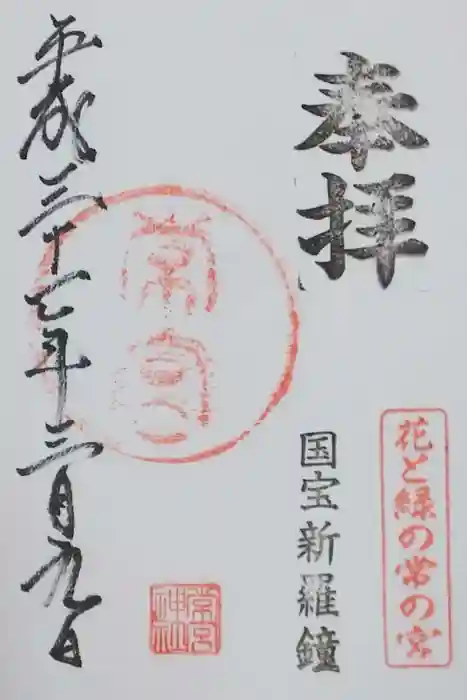 奉拝
花と緑の常の宮
国宝新羅鐘
常宮
常宮
神社
平成二十七年三月九日